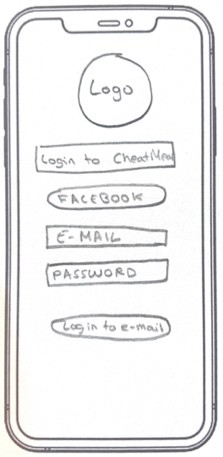 Logo
Login to CheatMeal
FACEBOOK
E-MAIL
PASSWORD
Login to e-mail